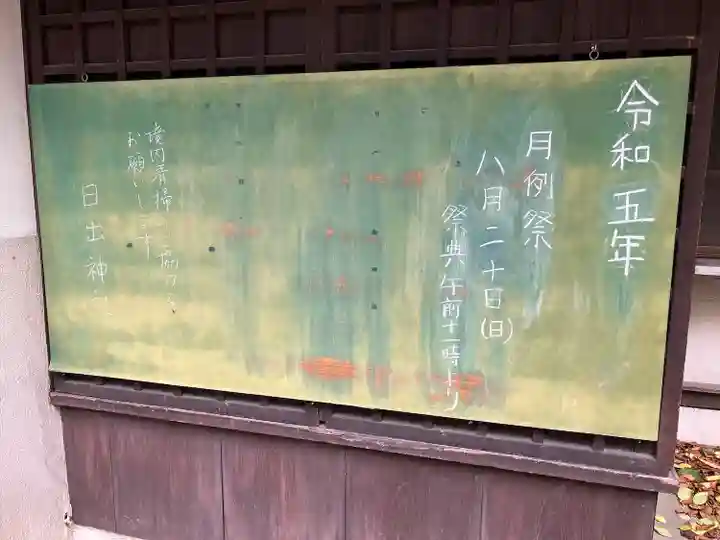 令和五年
月例祭
八月二十日(日)
祭典午前十一時より
境内清掃 協力
お願いします
日出神社